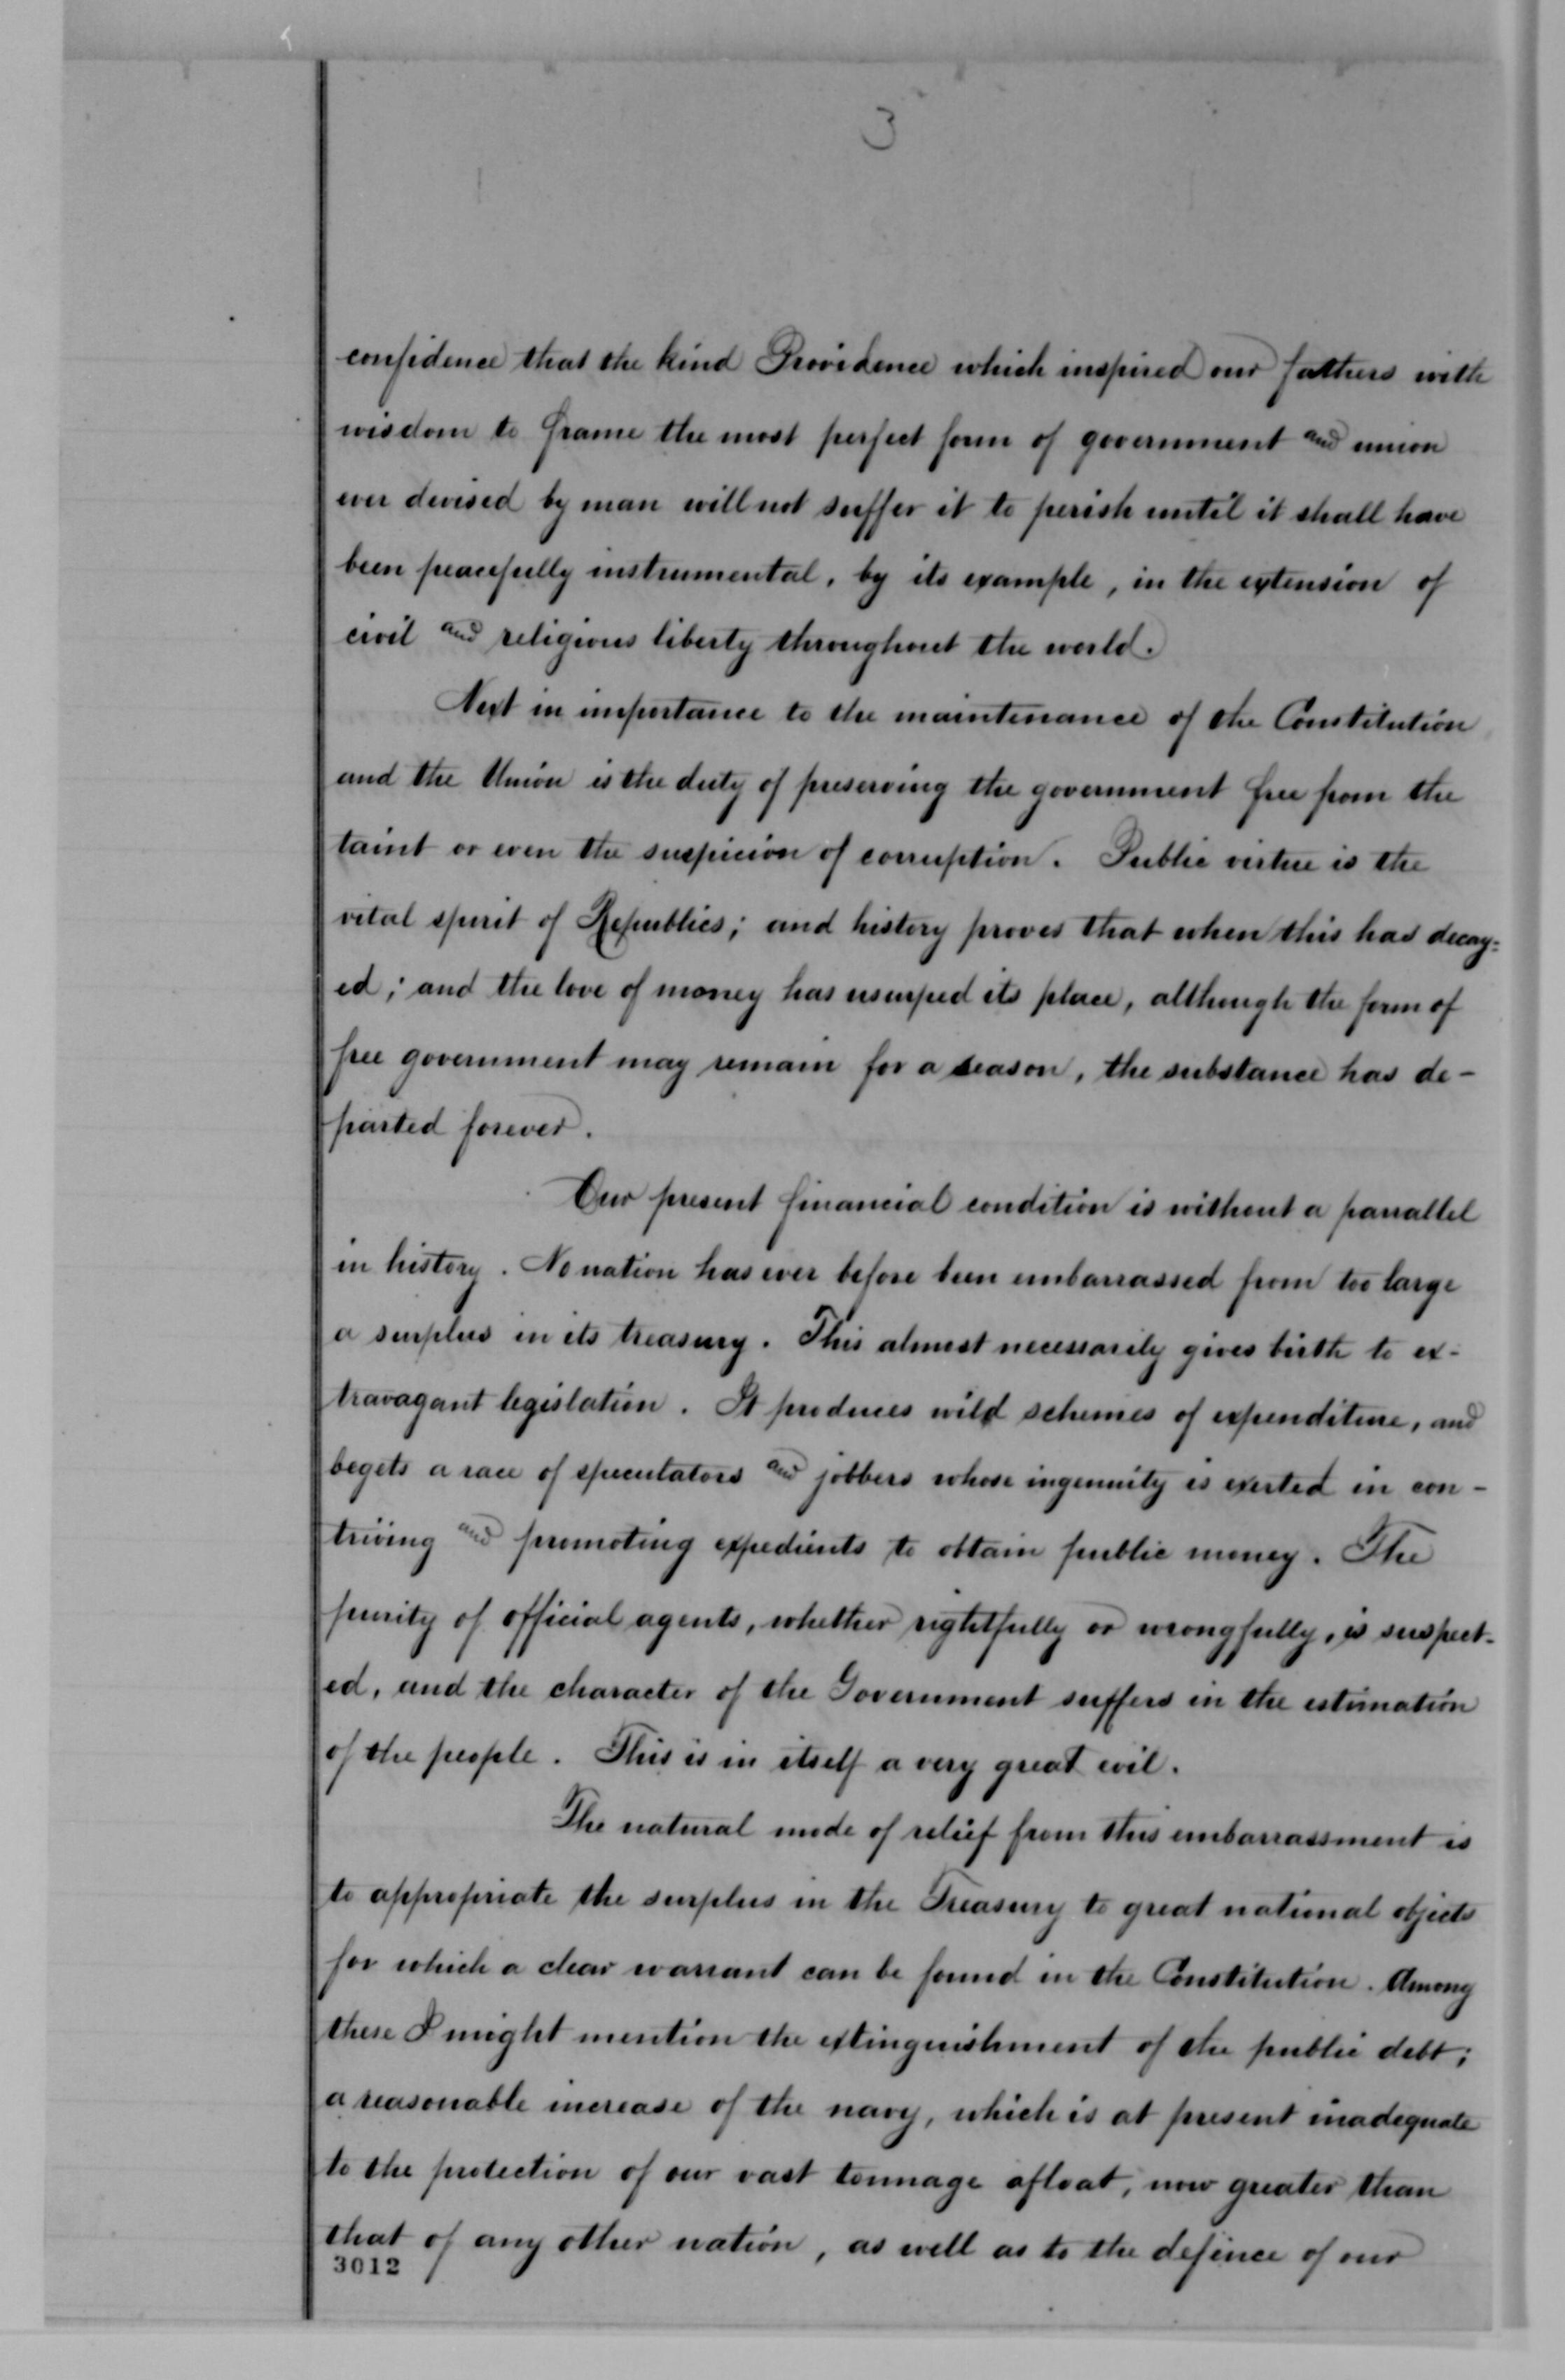 3
confidence that the kind Providence which inspired our fathers with
wisdom to frame the most perfect form of government and union
ever devised by man will not suffer it to perish until it shall have
been peacefully instrumental, by its example, in the extension of
civil and religious liberty throughout the world.
Next in importance to the maintenance of the Constitution
and the Union is the duty of preserving the government free from the
taint or even the suspicion of corruption. Public virtue is the
vital spirit of Republics; and history proves that when this has decay=
ed; and the love of money has usurped its place, although the form of
free government may remain for a season, the substance has de-
parted forever.
Our present financial condition is without a parrallel
in history. No nation has ever before been embarrassed from too large
a surplus in its treasury. This almost necessarily gives birth to ex-
travagant legislation. It produces wild schemes of expenditure, and
begets a race of speculators and jobbers whose ingenuity is exerted in con-
triving and promoting expedients to obtain public money. The
purity of official agents, whether rightfully or wrongfully, is suspect-
ed, and the character of the Government suffers in the estimation
of the people. This is in itself a very great evil.
The natural mode of relief from this embarrassment is
to appropriate the surplus in the Treasury to great national objects
for which a clear warrant can be found in the Constitution. Among
these I might mention the extinguishment of the public debt;
a reasonable increase of the navy, which is at present inadequate
to the protection of our vast tonnage afloat, now greater than
that of any other nation, as well as to the defence of our
3012